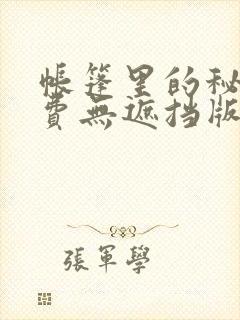 帳篷里的秘
費無遮挡版
張軍學